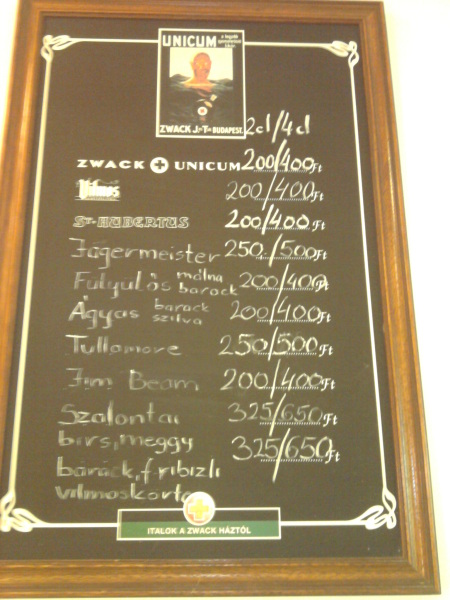 UNICUM
ZWACK J. és Tsai BUDAPEST.
2cl/4cl
ZWACK UNICUM 200/400 Ft
Vilmos 200/400 Ft
St. HUBERTUS 200/400 Ft
Jägermeister 250/500 Ft
Fütyülős málna barack 200/400 Ft
Ágyas barack szilva 200/400 Ft
Tullamore 250/500 Ft
Jim Beam 200/400 Ft
Szalontai 325/650 Ft
birs, meggy 325/650 Ft
barack, fribizli
vilmoskörte
ITALOK A ZWACK HÁZTÓL